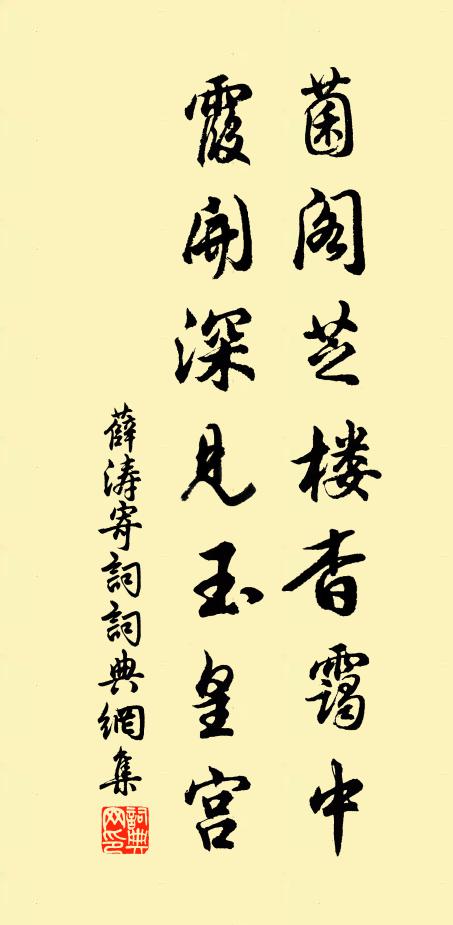 菌阁芝楼杳霭中
霞开深见玉皇宫
薛涛寄詞詞典網集
詞典网印